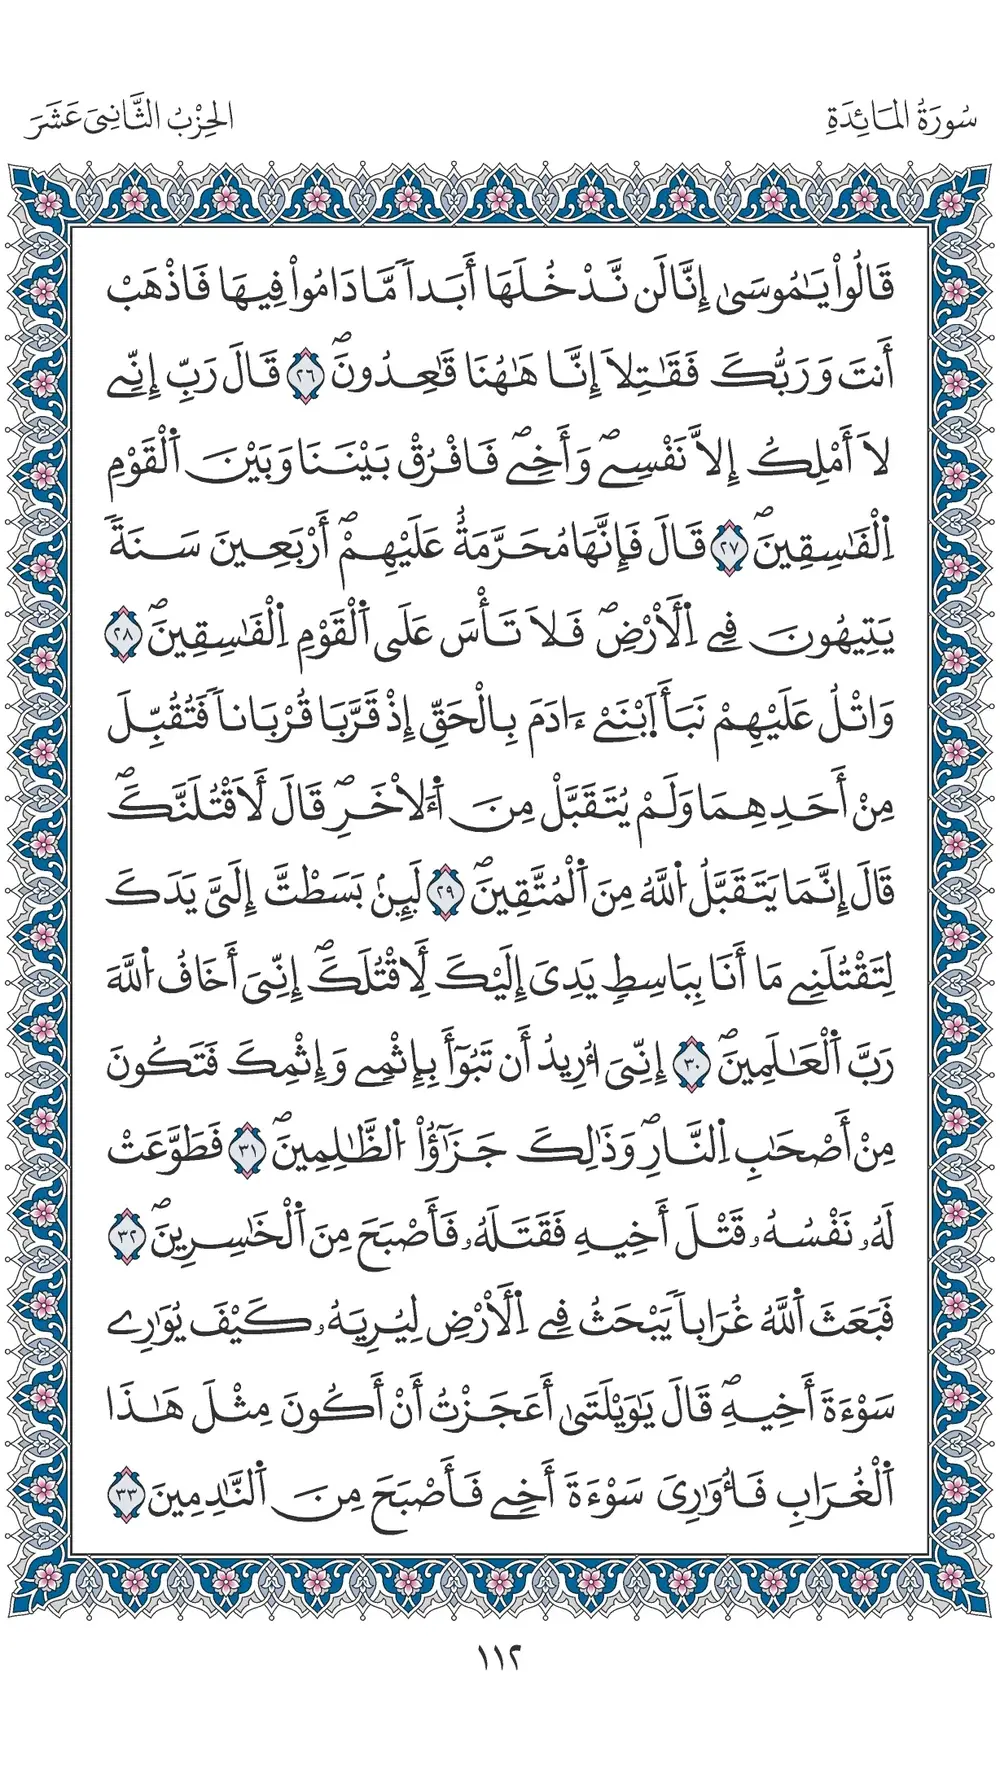 سُورَةُ المَائِدَةِ
الحِزْبُ الثَّانِيَ عَشَرَ
قَالُواْ يَٰمُوسَىٰ إِنَّا لَن نَّدْخُلَهَا أَبَداٗ مَّا دَامُواْ فِيهَا فَاذْهَبْ
أَنتَ وَرَبُّكَ فَقَٰتِلَا إِنَّا هَٰهُنَا قَٰعِدُونَۖ ٢٦ قَالَ رَبِّ إِنِّے
لَا أَمْلِكُ إِلَّا نَفْسِےۖ وَأَخِےۖ فَافْرُقْ بَيْنَنَا وَبَيْنَ اَ۬لْقَوْمِ
اِ۬لْفَٰسِقِينَۖ ٢٧ قَالَ فَإِنَّهَا مُحَرَّمَةٌ عَلَيْهِمْۖ أَرْبَعِينَ سَنَةٗ
يَتِيهُونَ فِے اِ۬لْأَرْضِۖ فَلَا تَأْسَ عَلَى اَ۬لْقَوْمِ اِ۬لْفَٰسِقِينَۖ ٢٨
وَاتْلُ عَلَيْهِمْ نَبَأَ اَ۪بْنَےْ ءَادَمَ بِالْحَقِّ إِذْ قَرَّبَا قُرْبَاناٗ فَتُقُبِّلَ
مِنْ أَحَدِهِمَا وَلَمْ يُتَقَبَّلْ مِنَ اَ۬لْأٓخَرِۖ قَالَ لَأَقْتُلَنَّكَۖ
قَالَ إِنَّمَا يَتَقَبَّلُ اُ۬للَّهُ مِنَ اَ۬لْمُتَّقِينَۖ ٢٩ لَئِنۢ بَسَطتَّ إِلَيَّ يَدَكَ
لِتَقْتُلَنِے مَا أَنَا بِبَاسِطٖ يَدِيَ إِلَيْكَ لِأَقْتُلَكَۖ إِنِّيَ أَخَافُ اُ۬للَّهَ
رَبَّ اَ۬لْعَٰلَمِينَۖ ٣٠ إِنِّيَ أُرِيدُ أَن تَبُوٓأَ بِإِثْمِے وَإِثْمِكَ فَتَكُونَ
مِنْ أَصْحَٰبِ اِ۬لنَّارِۖ وَذَٰلِكَ جَزَٰٓؤُاْ اُ۬لظَّٰلِمِينَۖ ٣١ فَطَوَّعَتْ
لَهُۥ نَفْسُهُۥ قَتْلَ أَخِيهِ فَقَتَلَهُۥ فَأَصْبَحَ مِنَ اَ۬لْخَٰسِرِينَۖ ٣٢
فَبَعَثَ اَ۬للَّهُ غُرَاباٗ يَبْحَثُ فِے اِ۬لْأَرْضِ لِيُرِيَهُۥ كَيْفَ يُوَٰرِے
سَوْءَةَ أَخِيهِۖ قَالَ يَٰوَيْلَتَىٰ أَعَجَزْتُ أَنْ أَكُونَ مِثْلَ هَٰذَا
اَ۬لْغُرَابِ فَأُوَٰرِيَ سَوْءَةَ أَخِے فَأَصْبَحَ مِنَ اَ۬لنَّٰدِمِينَ ٣٣
١١٢